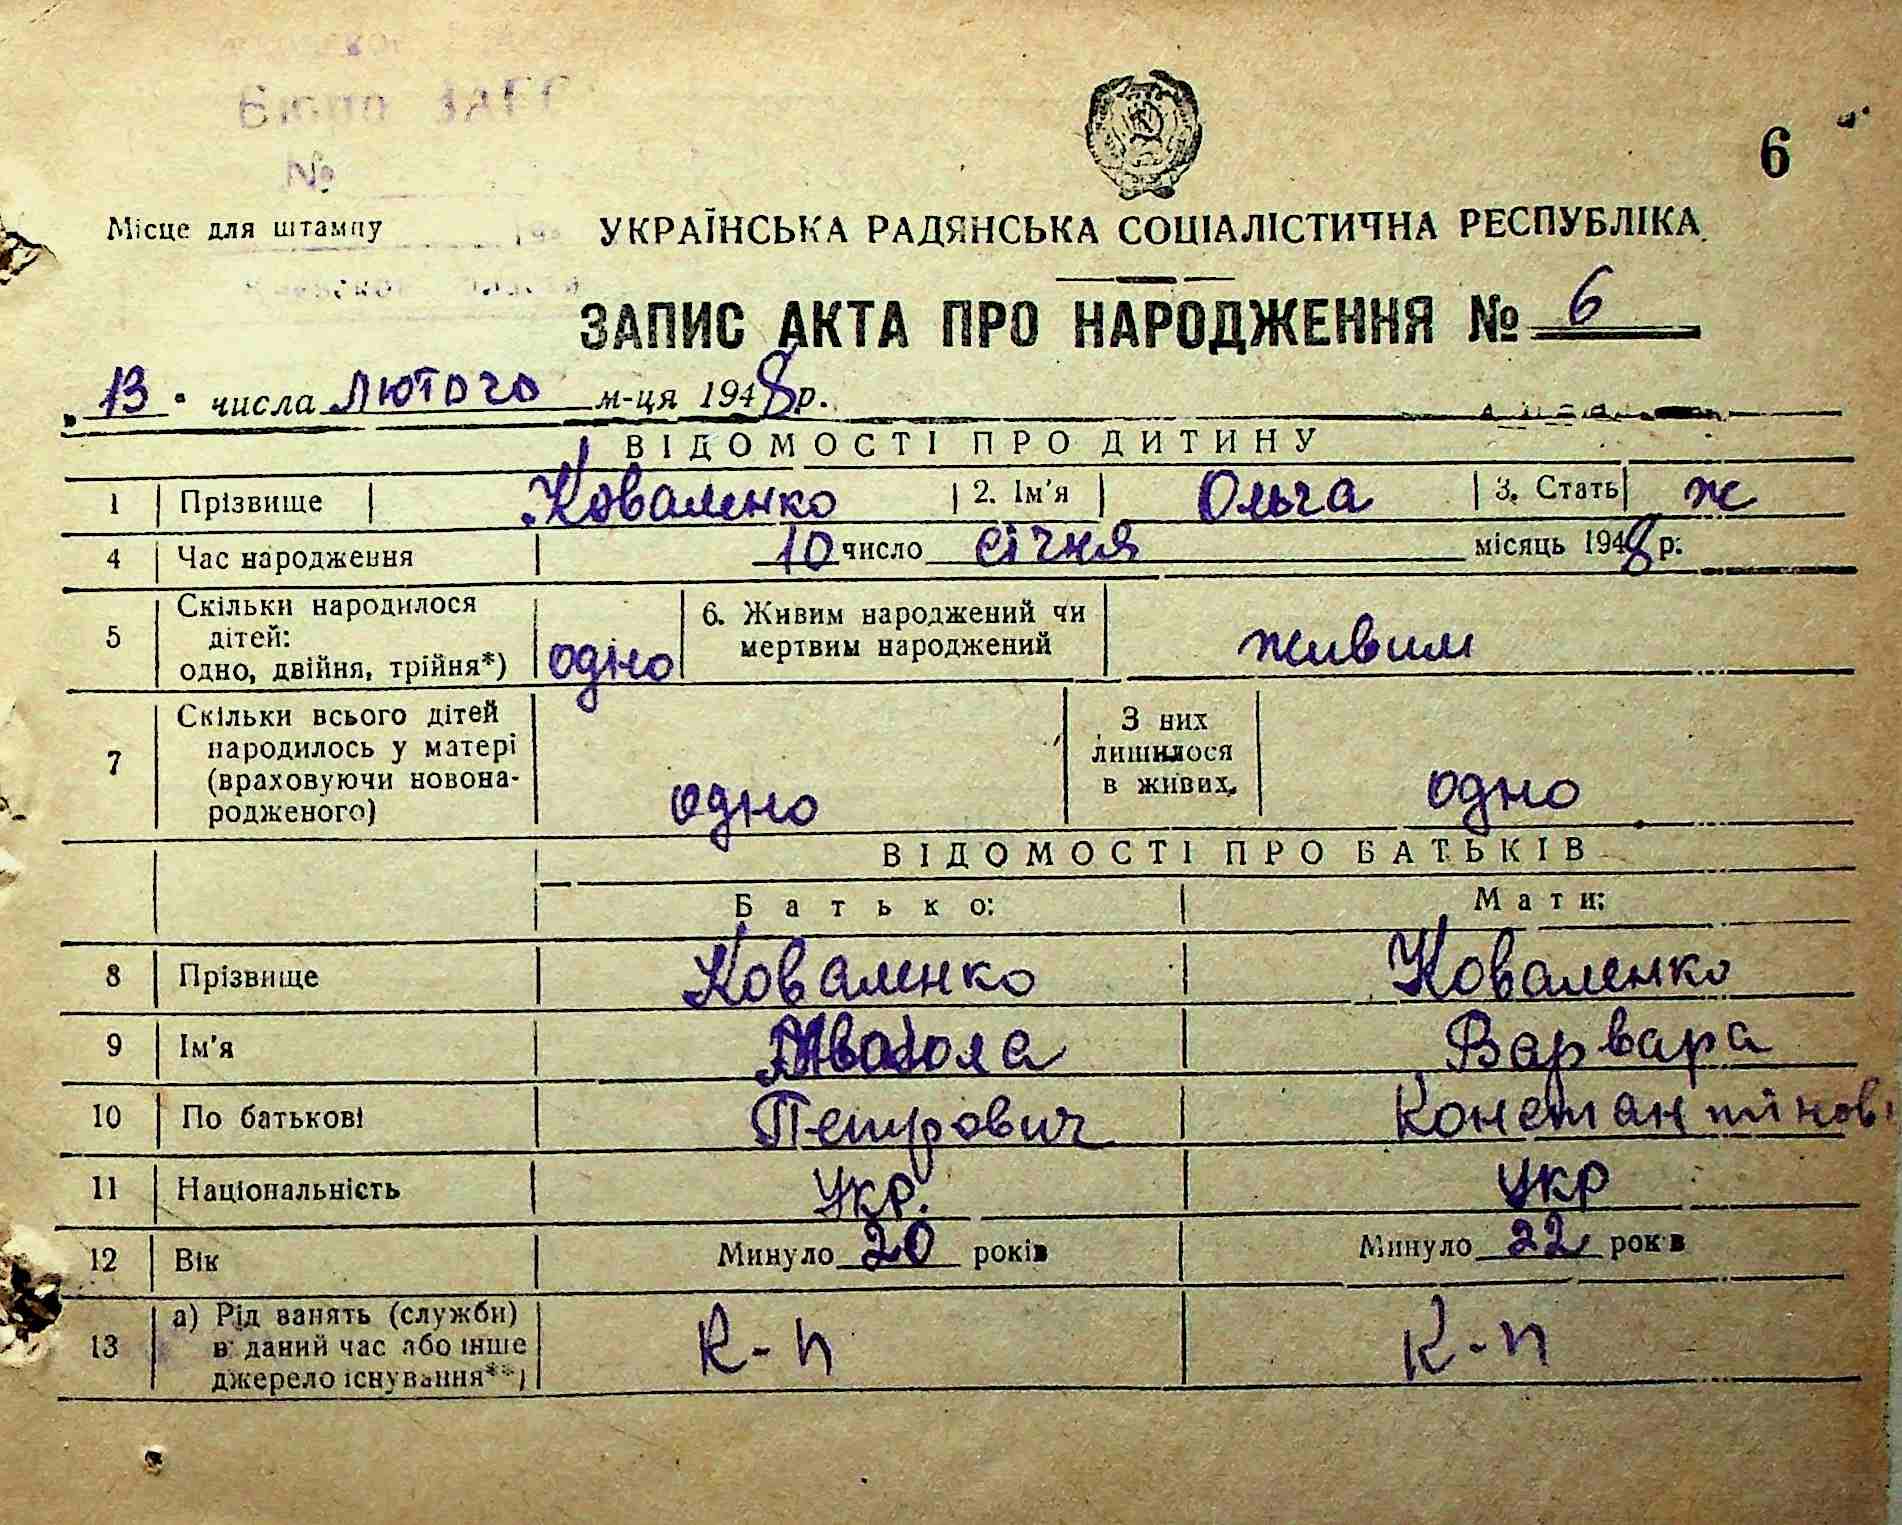 Бюро ЗАГС
№
6
Місце для штампу
УКРАЇНСЬКА РАДЯНСЬКА СОЦІАЛІСТИЧНА РЕСПУБЛІКА
ЗАПИС АКТА ПРО НАРОДЖЕННЯ № 6
13 числа лютого м-ця 1948 р.
ВІДОМОСТІ ПРО ДИТИНУ
1 Прізвище Коваленко 2. Ім'я Ольга 3. Стать ж
4 Час народження 10 число січня місяць 1948 р.
5 Скільки народилося
дітей:
одно, двійня, трійня*) одно
6. Живим народжений чи
мертвим народжений живим
7 Скільки всього дітей
народилось у матері
(враховуючи новона-
родженого) одно
З них
лишилося
в живих, одно
ВІДОМОСТІ ПРО БАТЬКІВ
Батько: Мати:
8 Прізвище Коваленко Коваленко
9 Ім'я Варвара
10 По батькові Петрович Константинов
11 Національність укр. укр
12 Вік Минуло 20 років Минуло 22 років
13 а) Рід занять (служби)
в даний час або інше
джерело існування**) К-п К-п